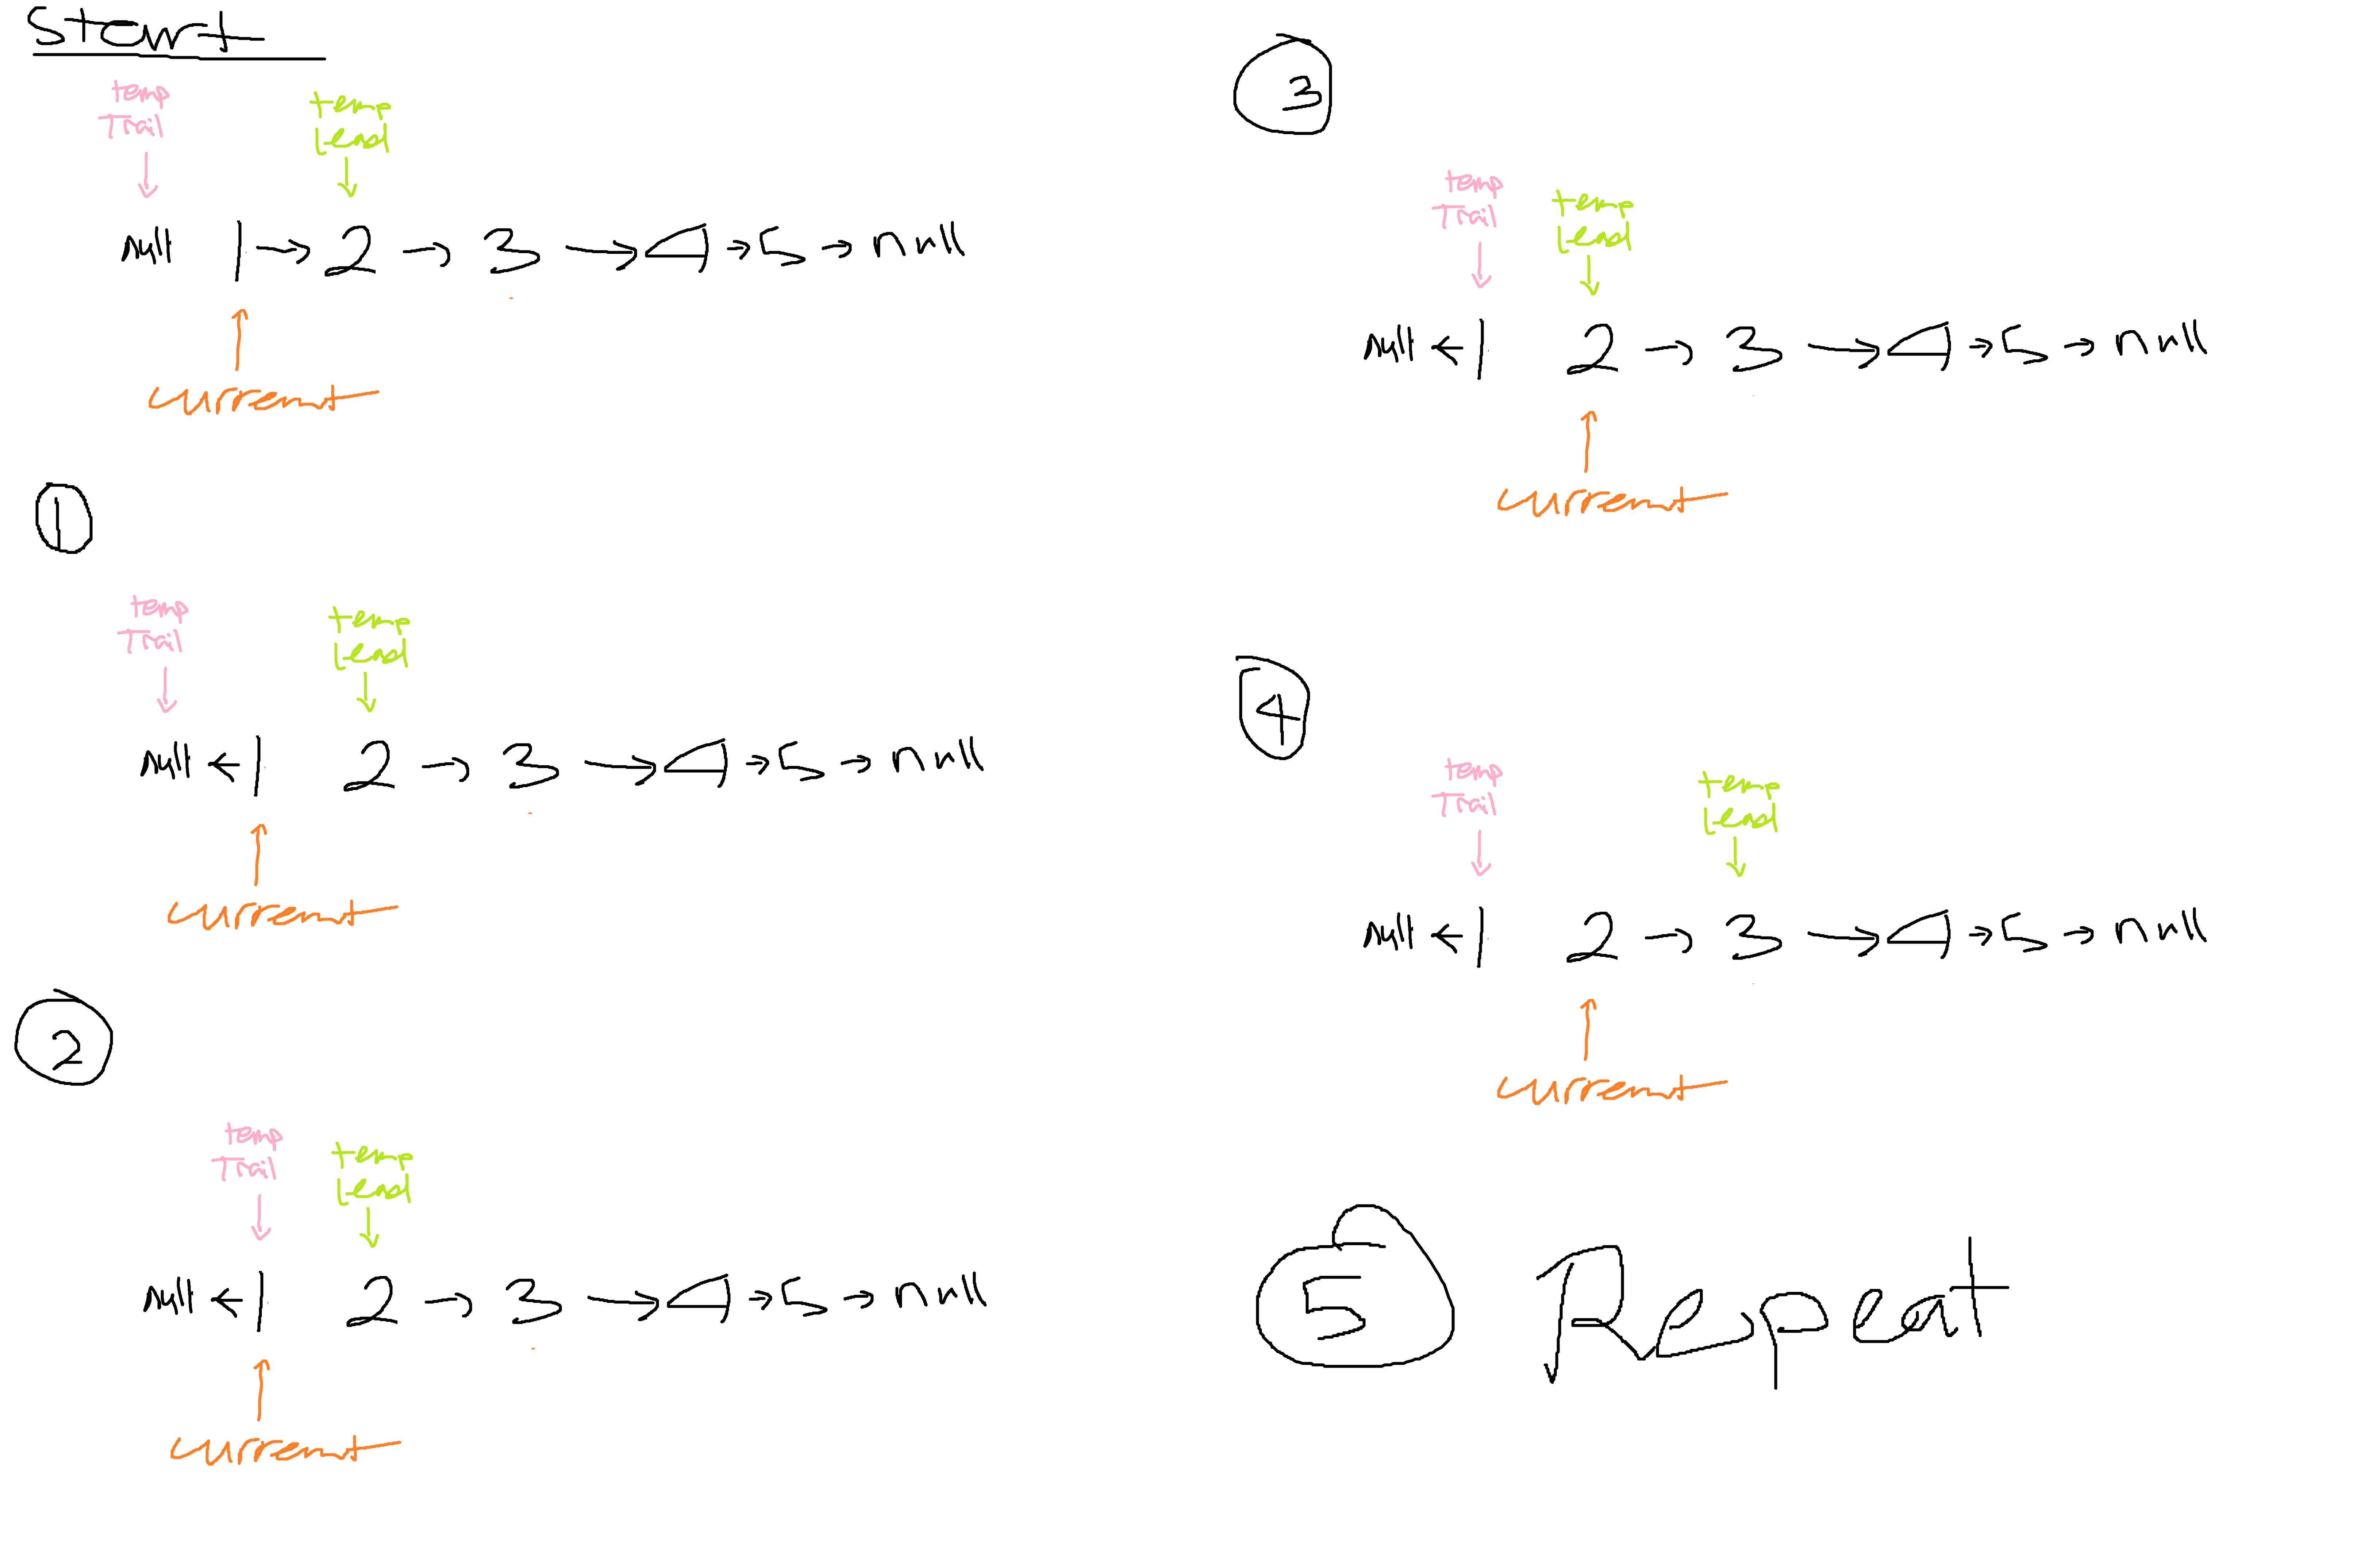 Start
temp
Trail
temp
Lead
null 1 → 2 → 3 → 4 → 5 → null
current
1
temp
Trail
temp
Lead
null ← 1 2 → 3 → 4 → 5 → null
current
2
temp
Trail
temp
Lead
null ← 1 2 → 3 → 4 → 5 → null
current
3
temp
Trail
temp
Lead
null ← 1 2 → 3 → 4 → 5 → null
current
4
temp
Trail
temp
Lead
null ← 1 2 → 3 → 4 → 5 → null
current
5 Repeat